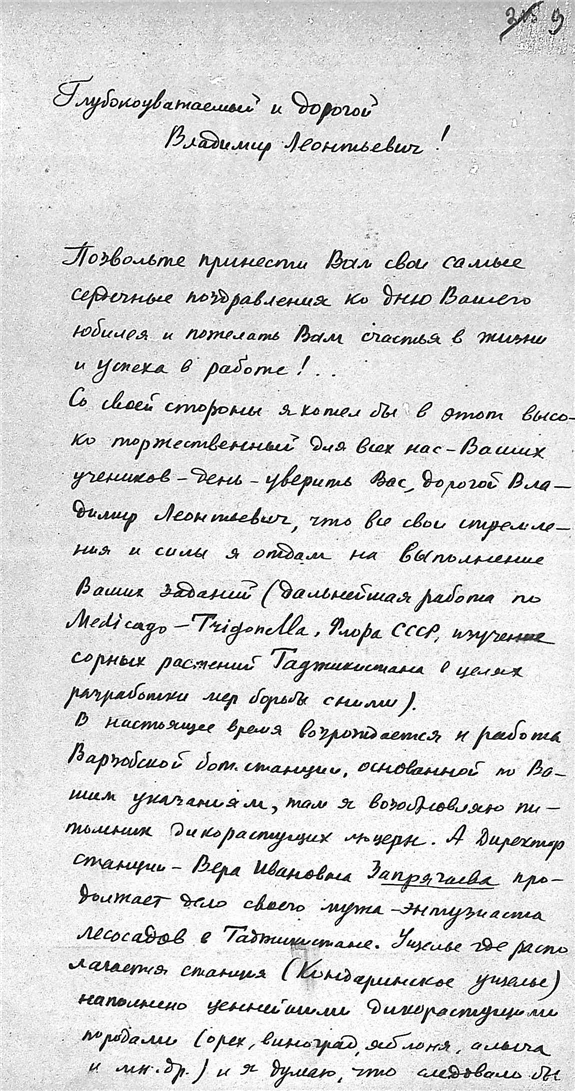 9
Глубокоуважаемый и дорогой
Владимир Леонтьевич!
Позвольте принести Вам свои самые
сердечные поздравления ко дню Вашего
юбилея и пожелать Вам счастья в жизни
и успеха в работе! . .
Со своей стороны я хотел бы в этот высо-
ко торжественный для всех нас - Ваших
учеников - день - уверить Вас, дорогой Вла-
димир Леонтьевич, что все свои стремле-
ния и силы я отдам на выполнение
Ваших заданий (дальнейшая работа по
Medicago - Trigonella, Флора СССР, изучение
сорных растений Таджикистана в целях
разработки мер борьбы с ними).
В настоящее время возрождается и работа
Варзобской бот. станции, основанной по Ва-
шим указаниям, там я возобновляю пи-
томник дикорастущих люцерн. А Директор
станции - Вера Ивановна Запрягаева про-
должает дело своего мужа - энтузиаста
лесосадов в Таджикистане. Ущелье где распо
лагается станция (Кондаринское ущелье)
наполнено ценнейшими дикорастущими
породами (орех, виноград, яблоня, алыча
и мн. др.) и я думаю, что следовало бы